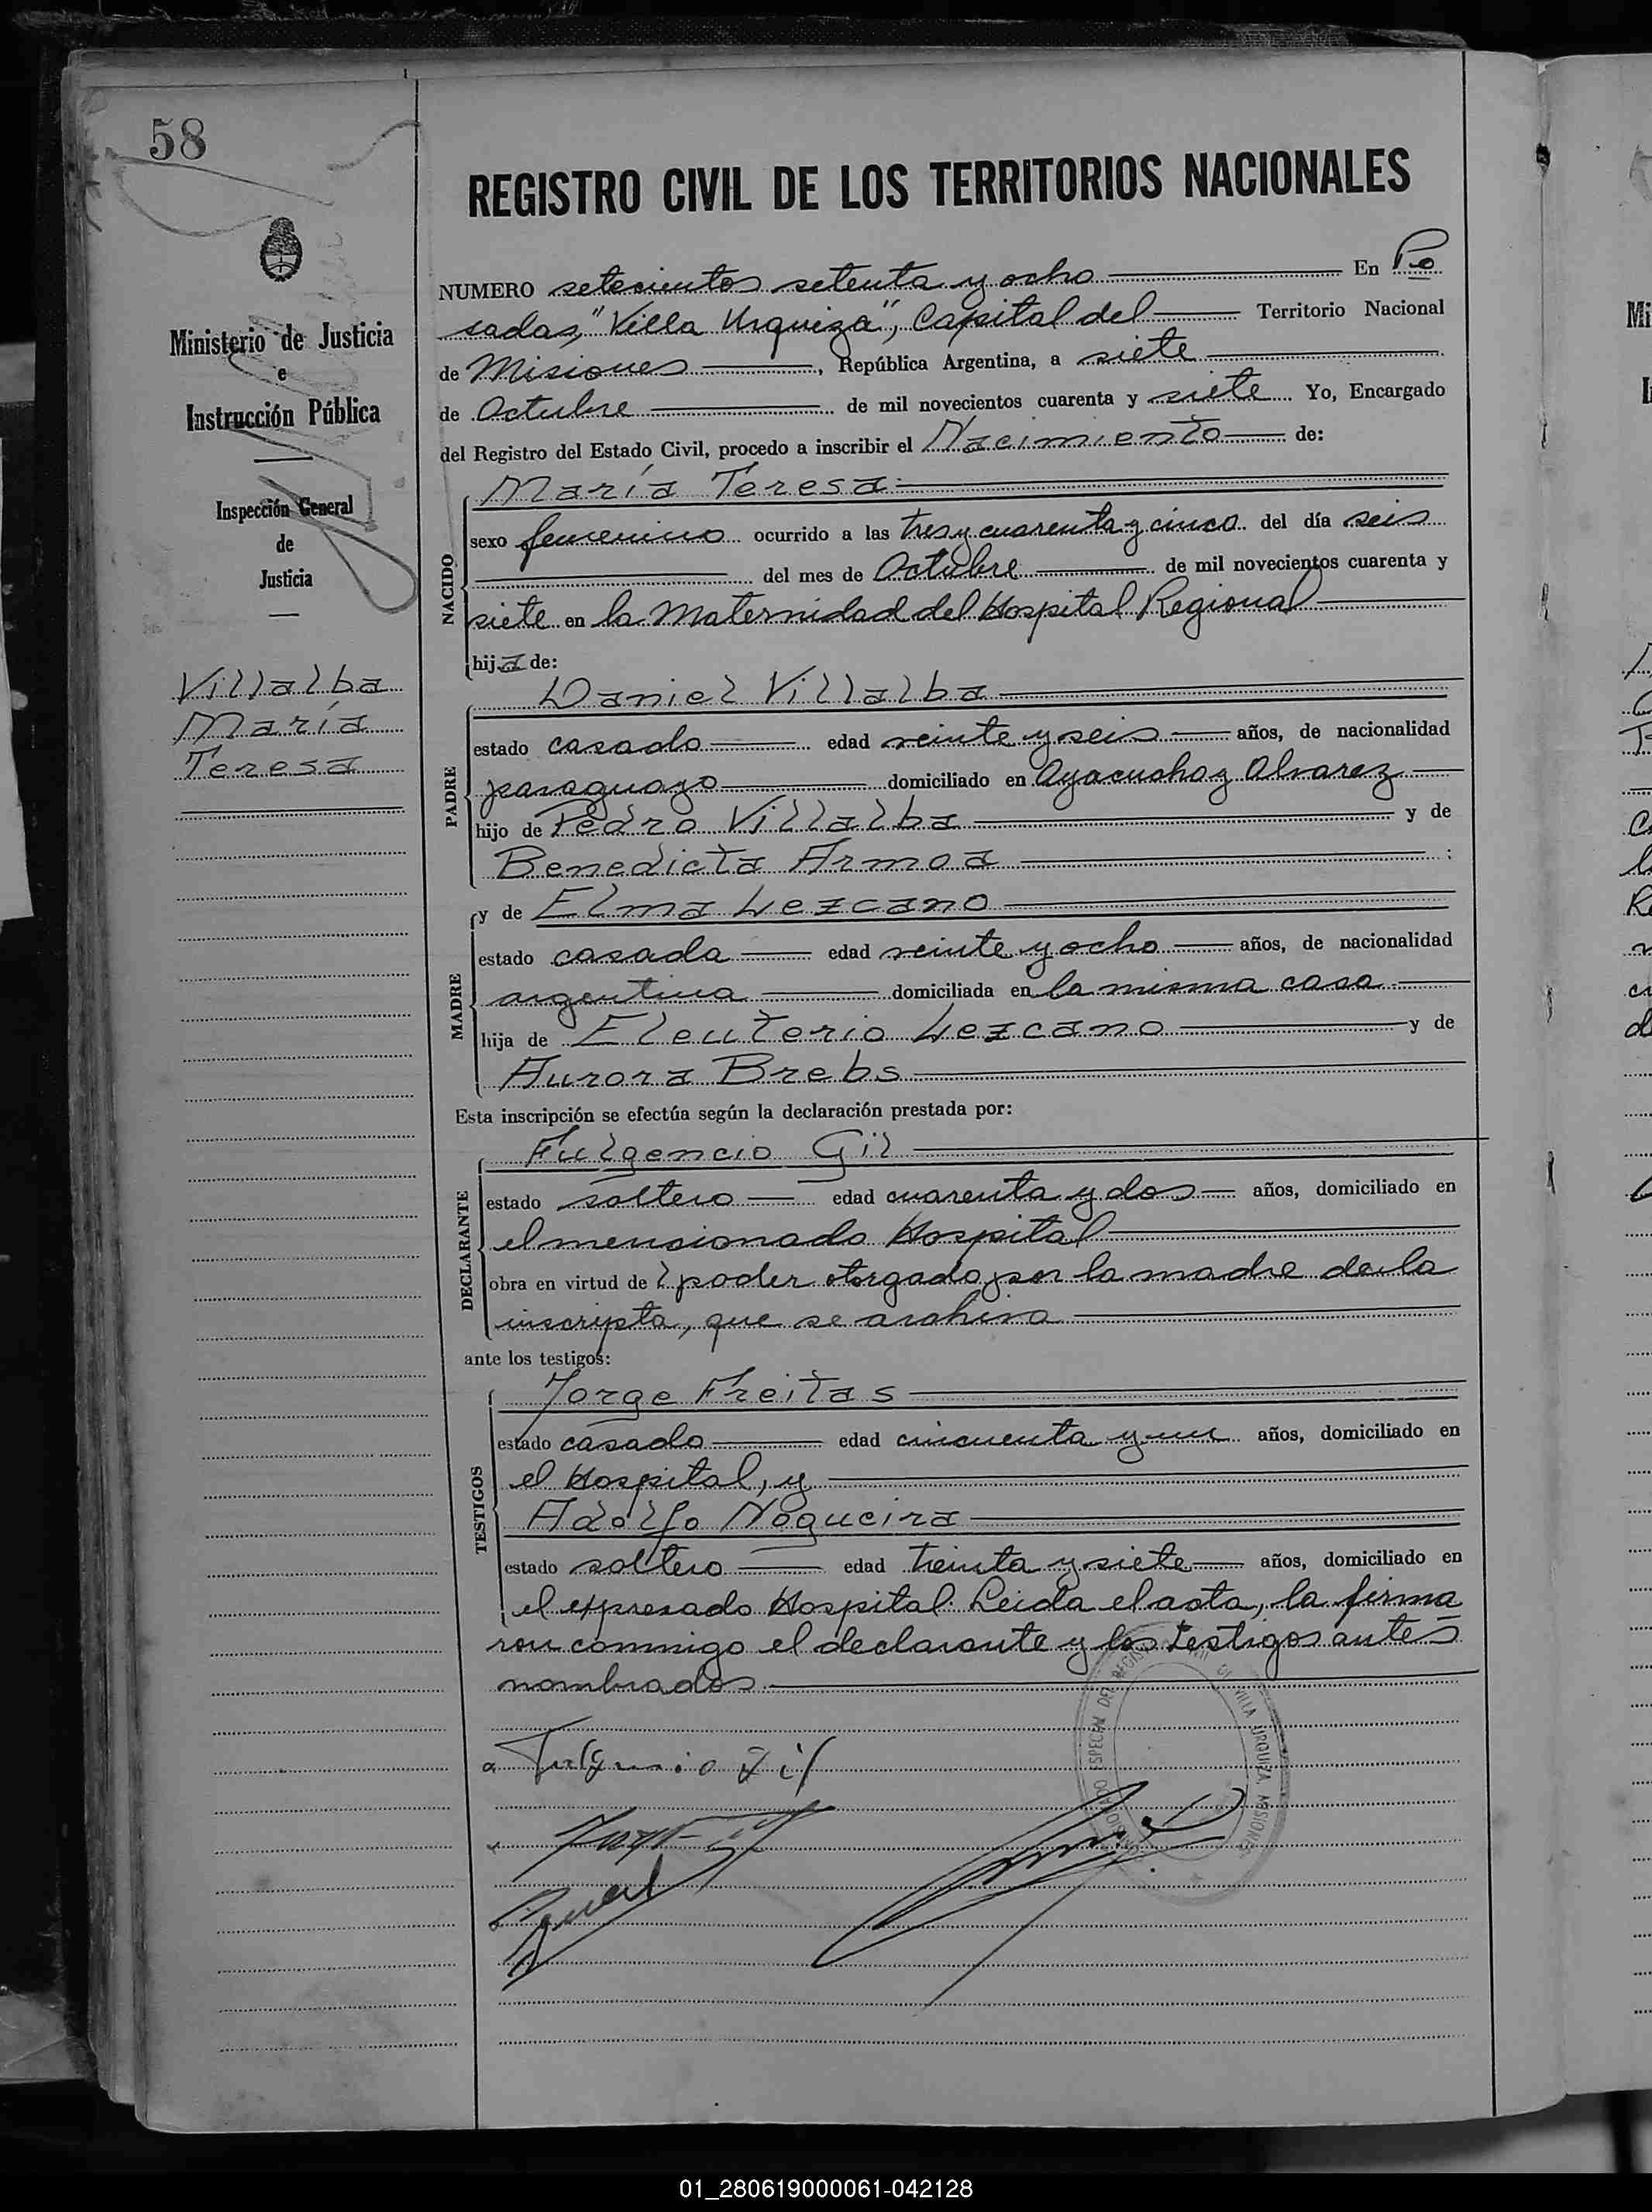 58
REGISTRO CIVIL DE LOS TERRITORIOS NACIONALES
Ministerio de Justicia
e
Instrucción Pública
Inspección General
de
Justicia
Villalba
María
Teresa
NUMERO setecientos setenta y ocho En Po
sadas, "Villa Urquiza", Capital del Territorio Nacional
de Misiones, República Argentina, a siete
de Octubre de mil novecientos cuarenta y siete Yo, Encargado
del Registro del Estado Civil, procedo a inscribir el Nacimiento de:
NACIDO
María Teresa
sexo femenino ocurrido a las tres y cuarenta y cinco del día seis
del mes de Octubre de mil novecientos cuarenta y
siete en la Maternidad del Hospital Regional
hija de:
PADRE
Daniel Villalba
estado casado edad veinte y seis años, de nacionalidad
paraguayo domiciliado en Ayacucho y Alvarez
hijo de Pedro Villalba y de
Benedicta Armoa :
MADRE
y de Elma Lezcano
estado casada edad veinte y ocho años, de nacionalidad
argentina domiciliada en la misma casa
hija de Eleuterio Lezcano y de
Aurora Brebs
Esta inscripción se efectúa según la declaración prestada por:
DECLARANTE
Fulgencio Gil
estado soltero edad cuarenta y dos años, domiciliado en
el mensionado Hospital
obra en virtud de l poder otorgado por la madre de la
inscripta, que se archiva
ante los testigos:
TESTIGOS
Jorge Freitas
estado casado edad cincuenta y un años, domiciliado en
el Hospital, y
Adolfo Nogueira
estado soltero edad treinta y siete años, domiciliado en
el expresado Hospital. Leida el acta, la firma
ron conmigo el declarante y los testigos antes
nombrados
Fulgencio Gil
VILLA URQUIZA, MISIONES
01_280619000061-042128